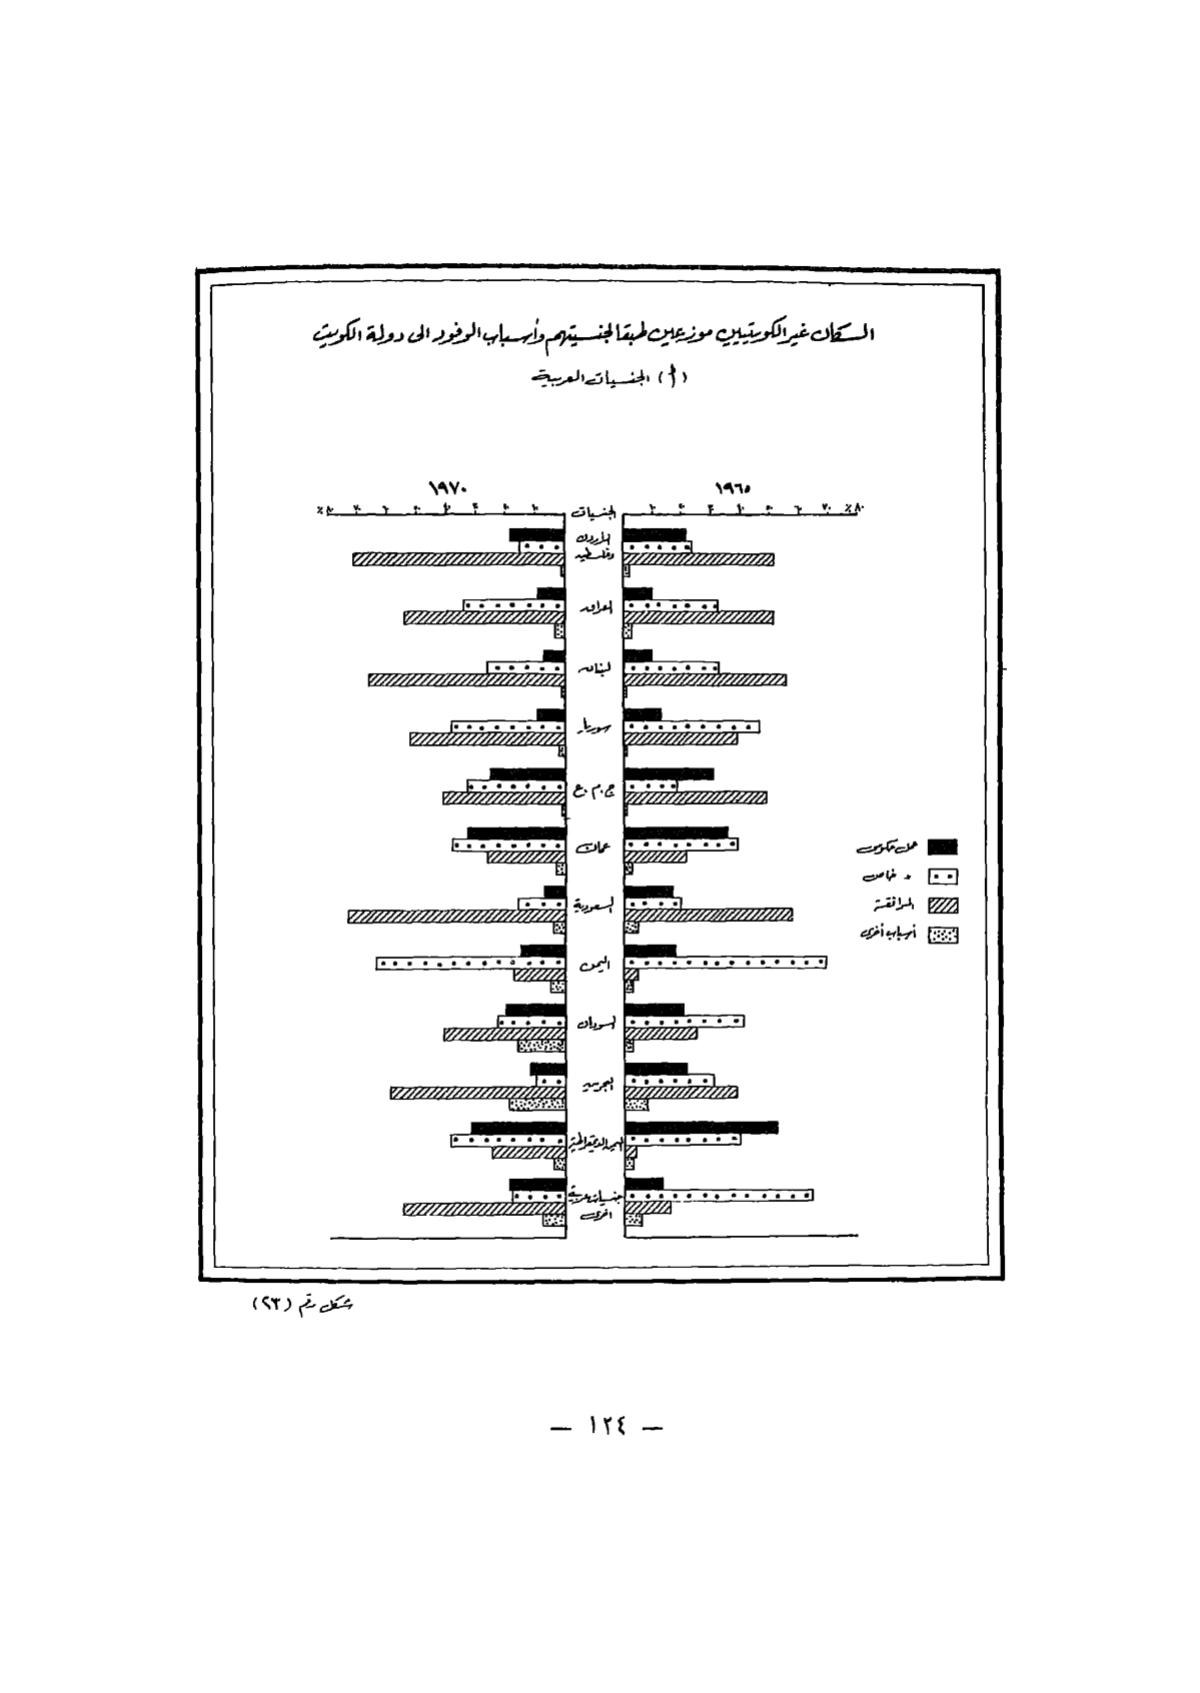 السكان غير الكويتيين موزعين طبقا لجنسيتهم وأسباب الوفود الى دولة الكويت
(أ) الجنسيات العربية
١٩٦٥
١٩٧٠
٪٨٠ ٧٠ ٦٠ ٥٠ ٤٠ ٣٠ ٢٠ ١٠
الجنسيات
٪٨٠ ٧٠ ٦٠ ٥٠ ٤٠ ٣٠ ٢٠ ١٠
الاردن
وفلسطين
العراق
لبنان
سوريا
ج.م.ع
عمان
السعودية
اليمن
السودان
البحرين
اليمن الديمقراطية
جنسيات عربية
أخرى
عمل حكومى
» خاص
المرافقة
أسباب أخرى
شكل رقم (٢٣)
— ١٢٤ —